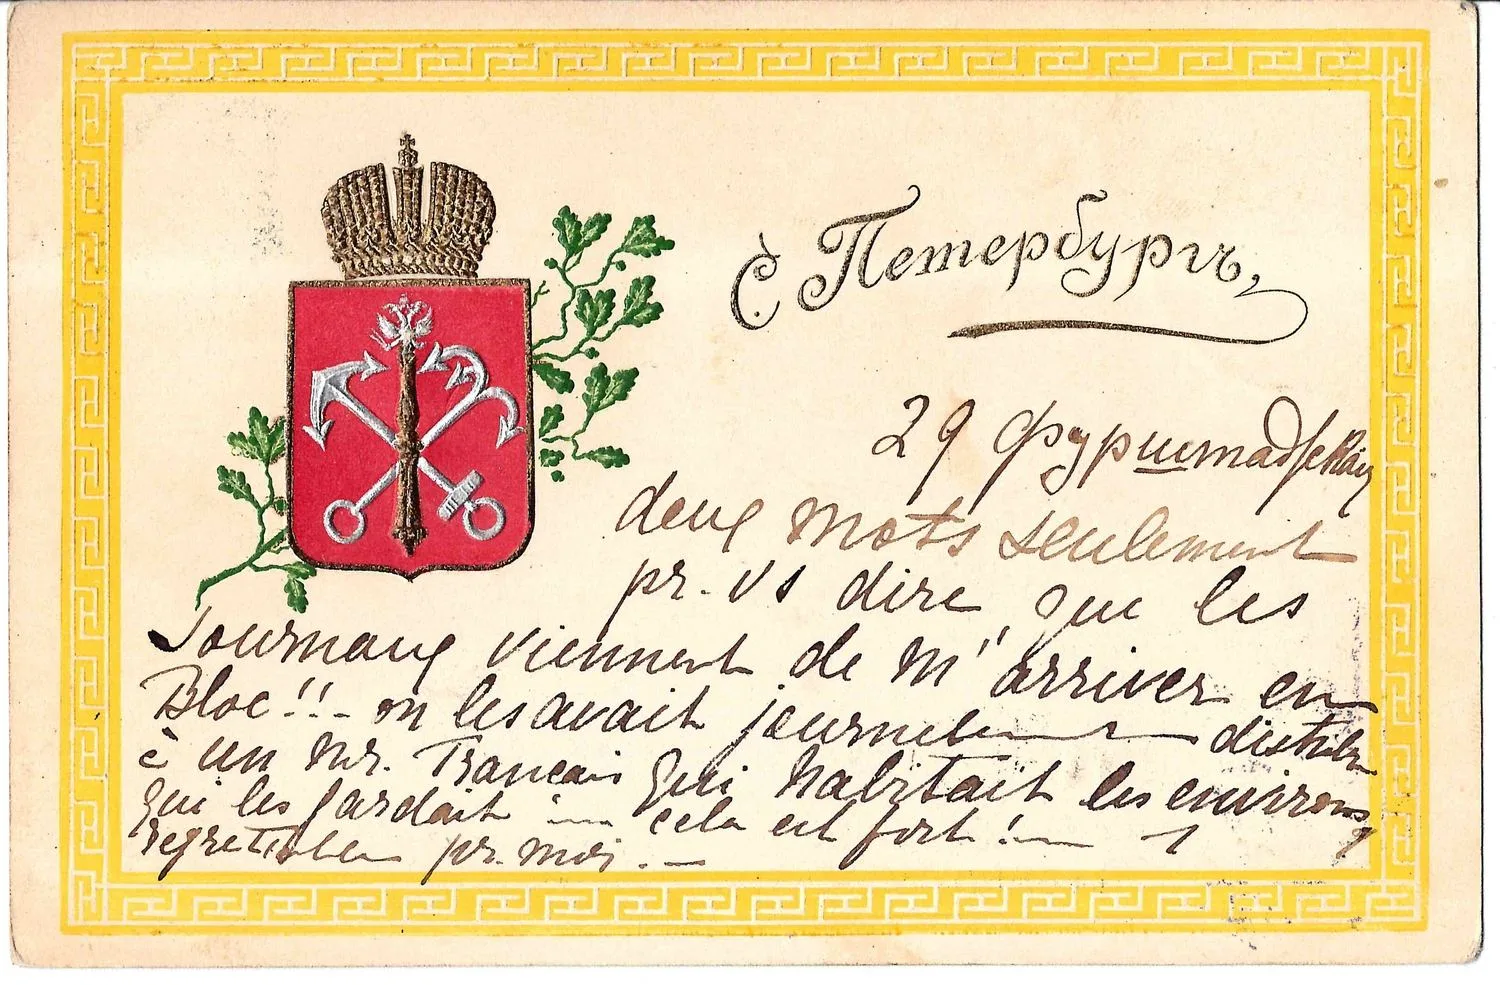 С. Петербургъ,
29 Фурштадская
deux mots seulement
pr. vs dire, que les
Journaux viennent de m'arriver en
Bloc!! - on les avait journellement distribu
à un Mr. Francais qui habitait les environs,
qui les gardait cela est fort!
regrettable pr. moi. -